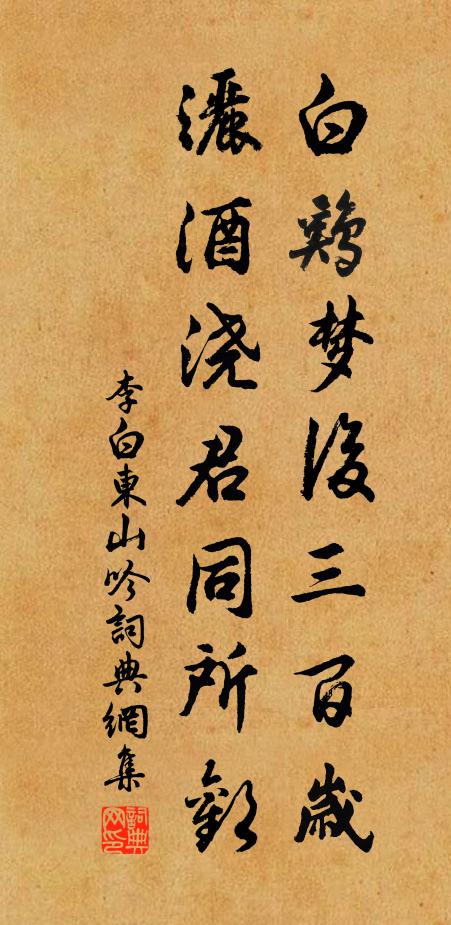 白鷄梦後三百歲
灑酒浇君同所歡
李白東山吟詞典網集
詞典網印